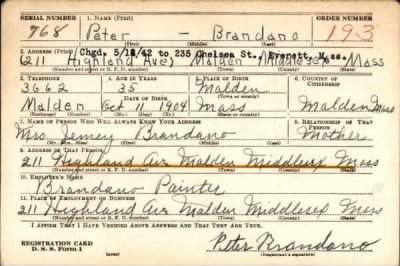 SERIAL NUMBER 1. NAME (Print) ORDER NUMBER
768 Peter - Brandano 193
(First) (Middle) (Last)
Chgd. 5/18/42 to 235 Chelsea St., Everett, Mass.
2. ADDRESS (Print)
(211 Highland Ave) Malden (Middlesex Mass
(Number and street or R. F. D. number) (Town) (County) (State)
3. TELEPHONE 4. AGE IN YEARS 5. PLACE OF BIRTH 6. COUNTRY OF CITIZENSHIP
3662 35 Malden
(Town or county)
DATE OF BIRTH
Malden Oct 1904 Mass Malden Mass
(Exchange) (Number) (Mo.) (Day) (Yr.) (State or country)
7. NAME OF PERSON WHO WILL ALWAYS KNOW YOUR ADDRESS 8. RELATIONSHIP OF THAT PERSON
Mrs. Brandano Mother
(Mr., Mrs., Miss) (First) (Middle) (Last)
9. ADDRESS OF THAT PERSON
211 Highland Ave Malden Middlesex Mass
(Number and street or R. F. D. number) (Town) (County) (State)
10. EMPLOYER'S NAME
Brandano
11. PLACE OF EMPLOYMENT OR BUSINESS
211 Highland Ave Malden Middlesex Mass
(Number and street or R. F. D. number) (Town) (County) (State)
I AFFIRM THAT I HAVE VERIFIED ABOVE ANSWERS AND THAT THEY ARE TRUE.
REGISTRATION CARD
D. S. S. Form 1
Peter Brandano
(Registrant's signature)